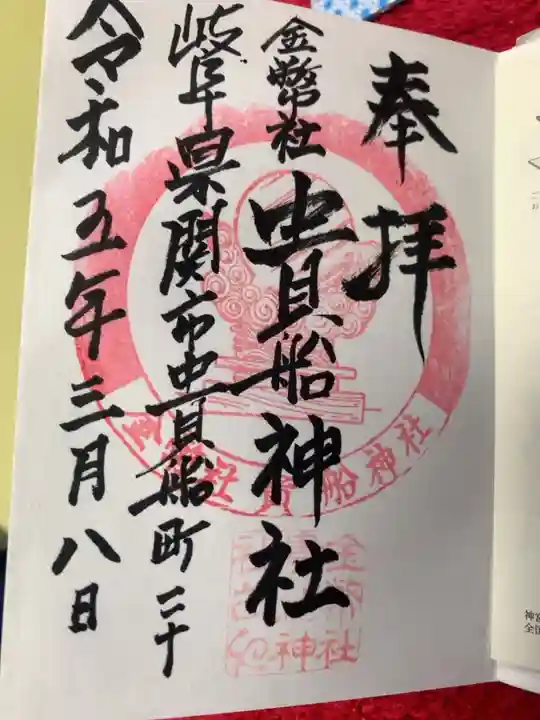 奉拝
金幣社
貴船神社
岐阜県関市貴船町二十
令和五年三月八日
金幣社貴船神社
神宮
全国